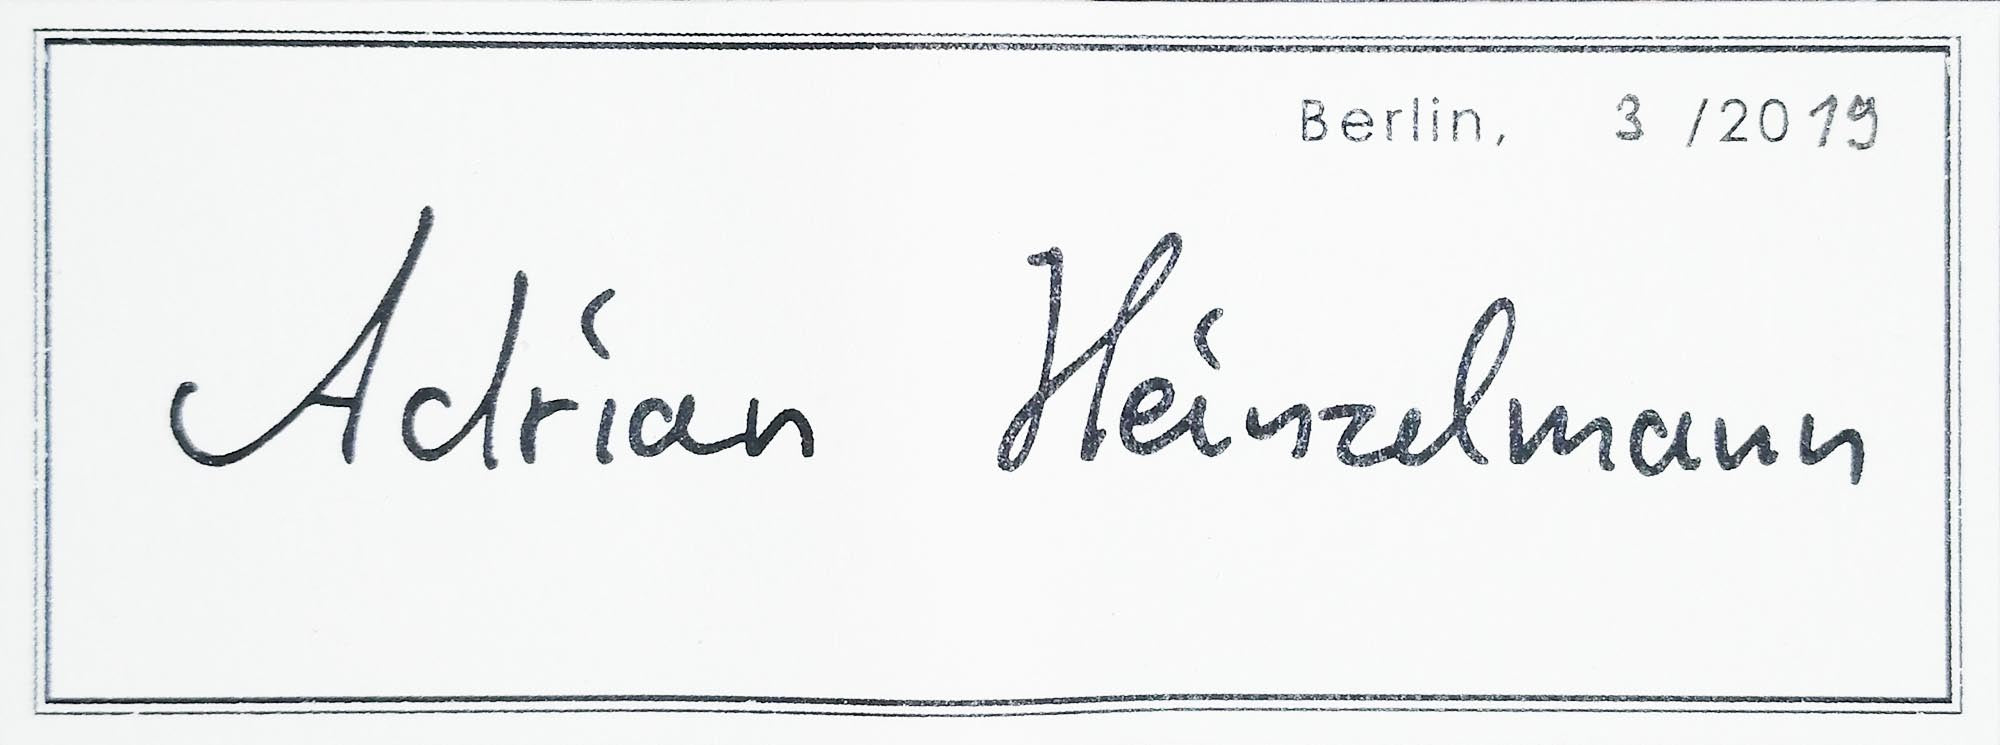 Berlin, 3 /2019
Adrian Heinzelmann